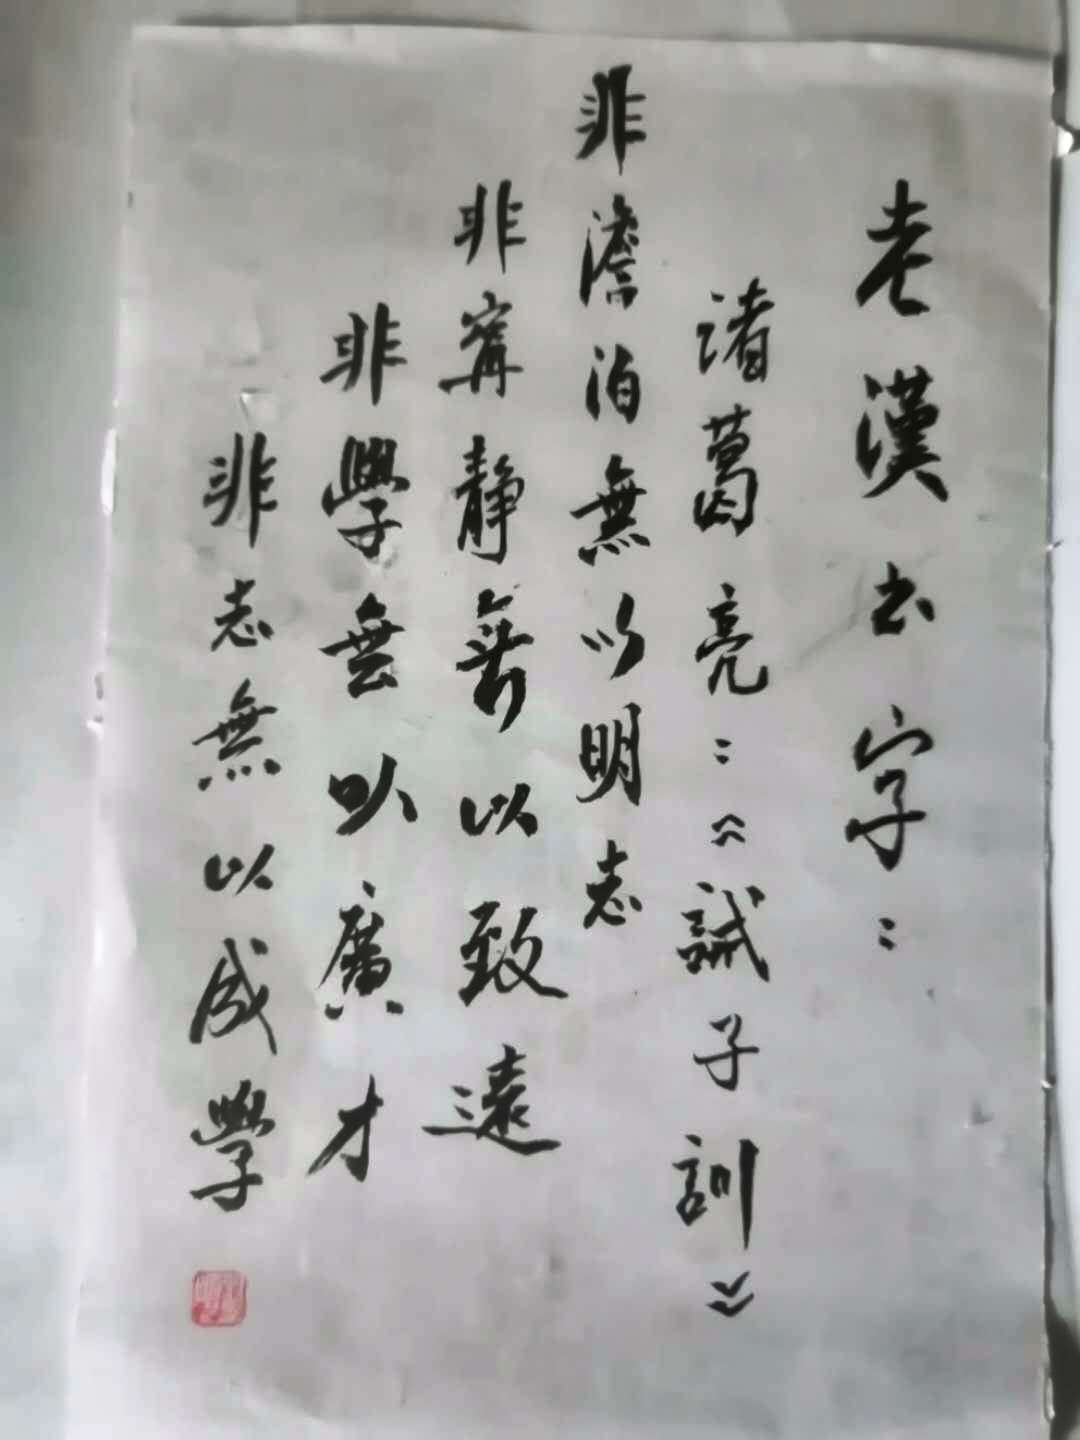 老漢书字：
诸葛亮：《誡子訓》
非澹泊無以明志
非寧靜無以致遠
非學無以廣才
非志無以成學